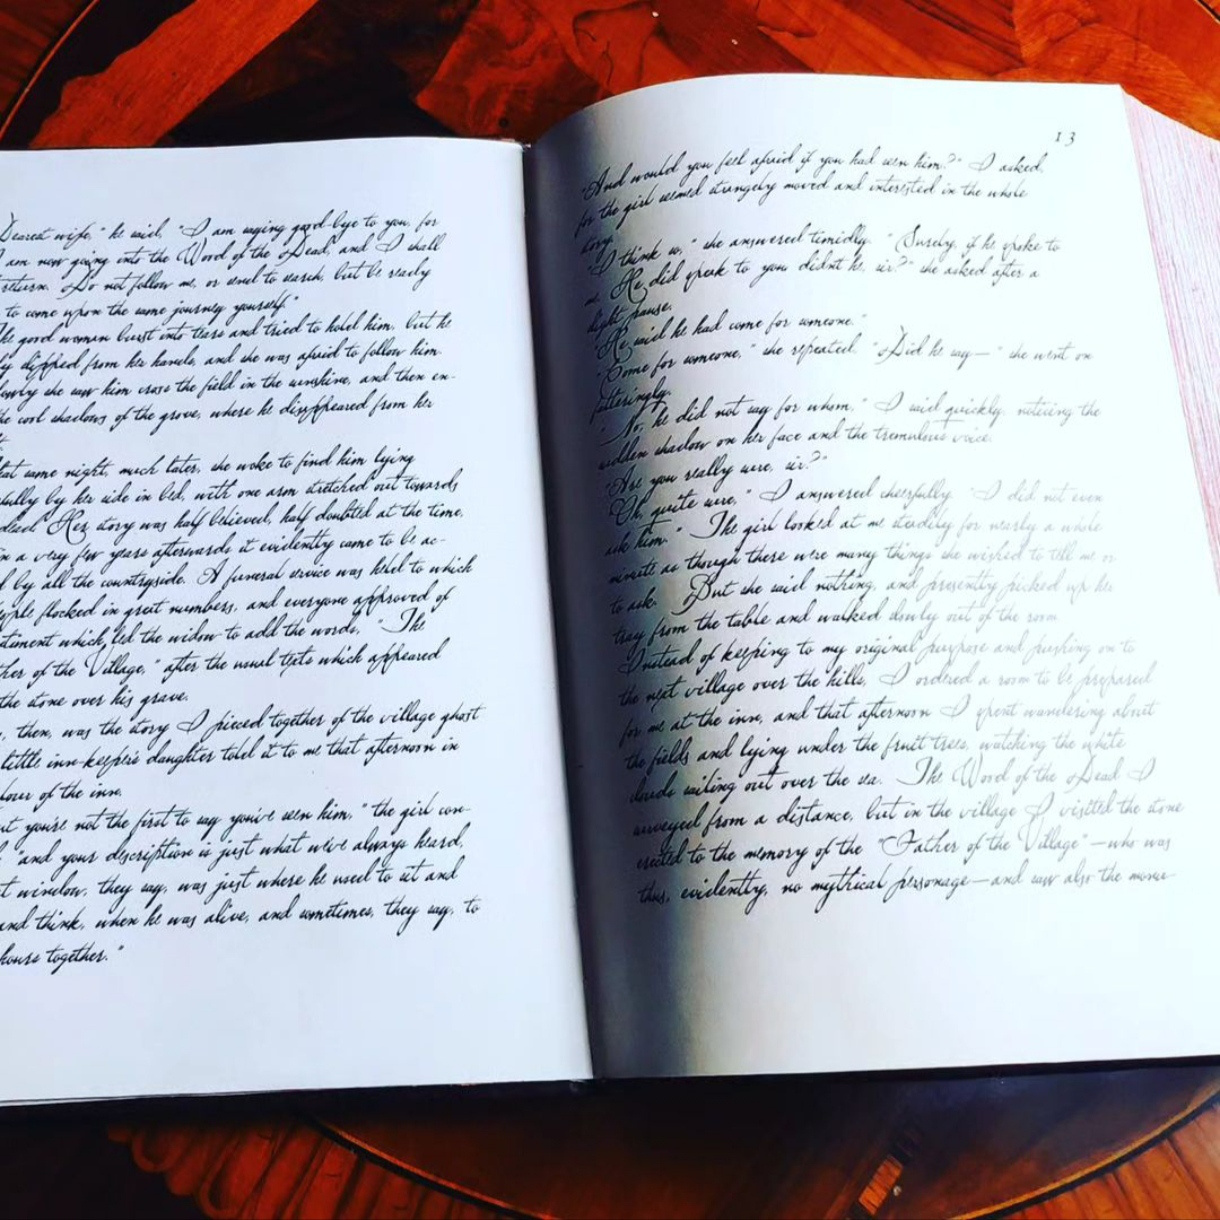 Dearest wife," he said, "I am saying good-bye to you, for
am now going into the Wood of the Dead, and I shall
return. Do not follow me, or send to search, but be ready
to come upon the same journey yourself."
he good woman burst into tears and tried to hold him, but he
ly slipped from her hands, and she was afraid to follow him.
lowly she saw him cross the field in the sunshine, and then en-
he cool shadows of the grove, where he disappeared from her
t.
hat same night, much later, she woke to find him lying
efully by her side in bed, with one arm stretched out towards
dead. Her story was half believed, half doubted at the time,
in a very few years afterwards it evidently came to be ac-
d by all the countryside. A funeral service was held to which
eople flocked in great numbers, and everyone approved of
ntiment which led the widow to add the words, "The
her of the Village," after the usual texts which appeared
the stone over his grave.
, then, was the story I pieced together of the village ghost
little inn-keeper's daughter told it to me that afternoon in
lour of the inn.
ut you're not the first to say you've seen him," the girl con-
"and your description is just what we've always heard,
t window, they say, was just where he used to sit and
and think, when he was alive, and sometimes, they say, to
hours together."
13
"And would you feel afraid if you had seen him?" I asked,
for the girl seemed strangely moved and interested in the whole
story.
"I think so," she answered timidly. "Surely, if he spoke to
me. He did speak to you, didn't he, sir?" she asked after a
slight pause.
"He said he had come for someone."
"Come for someone," she repeated. "Did he say—" she went on
falteringly.
"No, he did not say for whom," I said quickly, noticing the
sudden shadow on her face and the tremulous voice.
"Are you really sure, sir?"
"Oh, quite sure," I answered cheerfully. "I did not even
ask him." The girl looked at me steadily for nearly a whole
minute as though there were many things she wished to tell me or
to ask. But she said nothing, and presently picked up her
tray from the table and walked slowly out of the room.
Instead of keeping to my original purpose and pushing on to
the next village over the hills, I ordered a room to be prepared
for me at the inn, and that afternoon I spent wandering about
the fields and lying under the fruit trees, watching the white
clouds sailing out over the sea. The Wood of the Dead I
surveyed from a distance, but in the village I visited the stone
erected to the memory of the "Father of the Village"—who was
thus, evidently, no mythical personage—and saw also the monu-